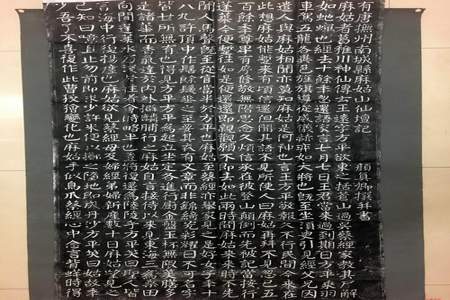 有唐撫州南城縣麻姑山仙壇記 顏真卿撰并書
麻姑者葛稚川神仙傳云王遠字方平欲東之括蒼山過吳蔡經家教其尸解
如蛇蟬也經去十餘年忽還語家言七月七日王君當來過到期日方平乘羽
車駕五龍各異色旌旗導從威儀赫弈如大將也既至坐須臾引見經父兄因
遣人與麻姑相聞亦莫知麻姑是何神也言王方平敬報久不行民間今來在
此想麻姑能暫來有頃信還但聞其語不見所使人曰麻姑再拜不見忽已五
百餘年尊卑有序修敬無階思念久煩信承在彼登山顛倒而先被記當按行
蓬萊今便暫往如是便還還即親觀願不即去如此兩時間麻姑來來時不先
聞人馬聲既至從官當半於方平也麻姑至蔡經亦舉家見之是好女子年十
八九許頂中作髻餘髮垂之至要其衣有文章而非錦綺光彩耀日不可名字
皆世所無有也得見方平方平為起立坐定各進行廚金盤玉杯無限美膳多
是諸華而香氣達於內外擗麟脯行之麻姑自言接侍以來見東海三為桑田
向間蓬萊水乃淺於往者會時略半也豈將復還為陸陵乎方平笑曰聖人皆
言海中行復揚塵也麻姑欲見蔡經母及婦經弟婦新產數十日麻姑望見之
已知曰噫且止勿前即求少許米便以擲之墮地即成丹沙方平笑曰姑故年
少吾了不喜復作此曹狡獪變化也麻姑手似鳥爪蔡經心中念言背蛘時得